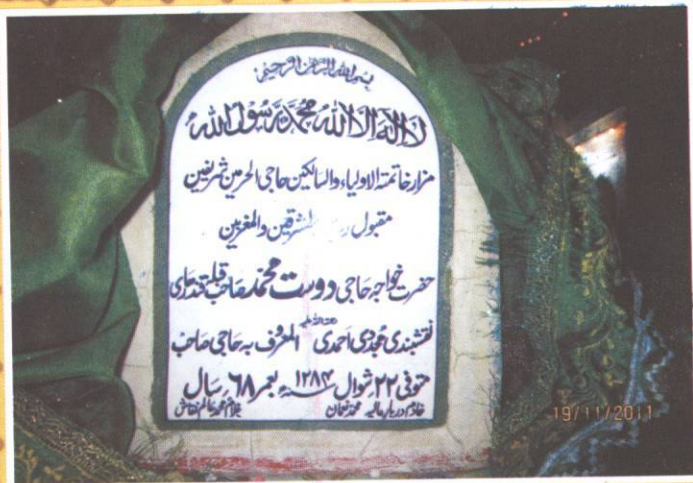 بسم اللہ الرحمن الرحیم
لا الہ الا اللہ محمد رسول اللہ
مزار خاتمتہ الاولیاء والسالکین حاجی الحرمین شریفین
مقبول المشرقین والمغربین
حضرت خواجہ حاجی دوست محمد صاحب قبلہ قندہاری
نقشبندی مجددی احمدی المعروف بہ حاجی صاحب
متوفی ۲۲ شوال ۱۲۸۴ھ بعمر ۶۸ سال
خادم دربار عالیہ محمد نعمان غلام محمد عالم نقاش
19/11/2011